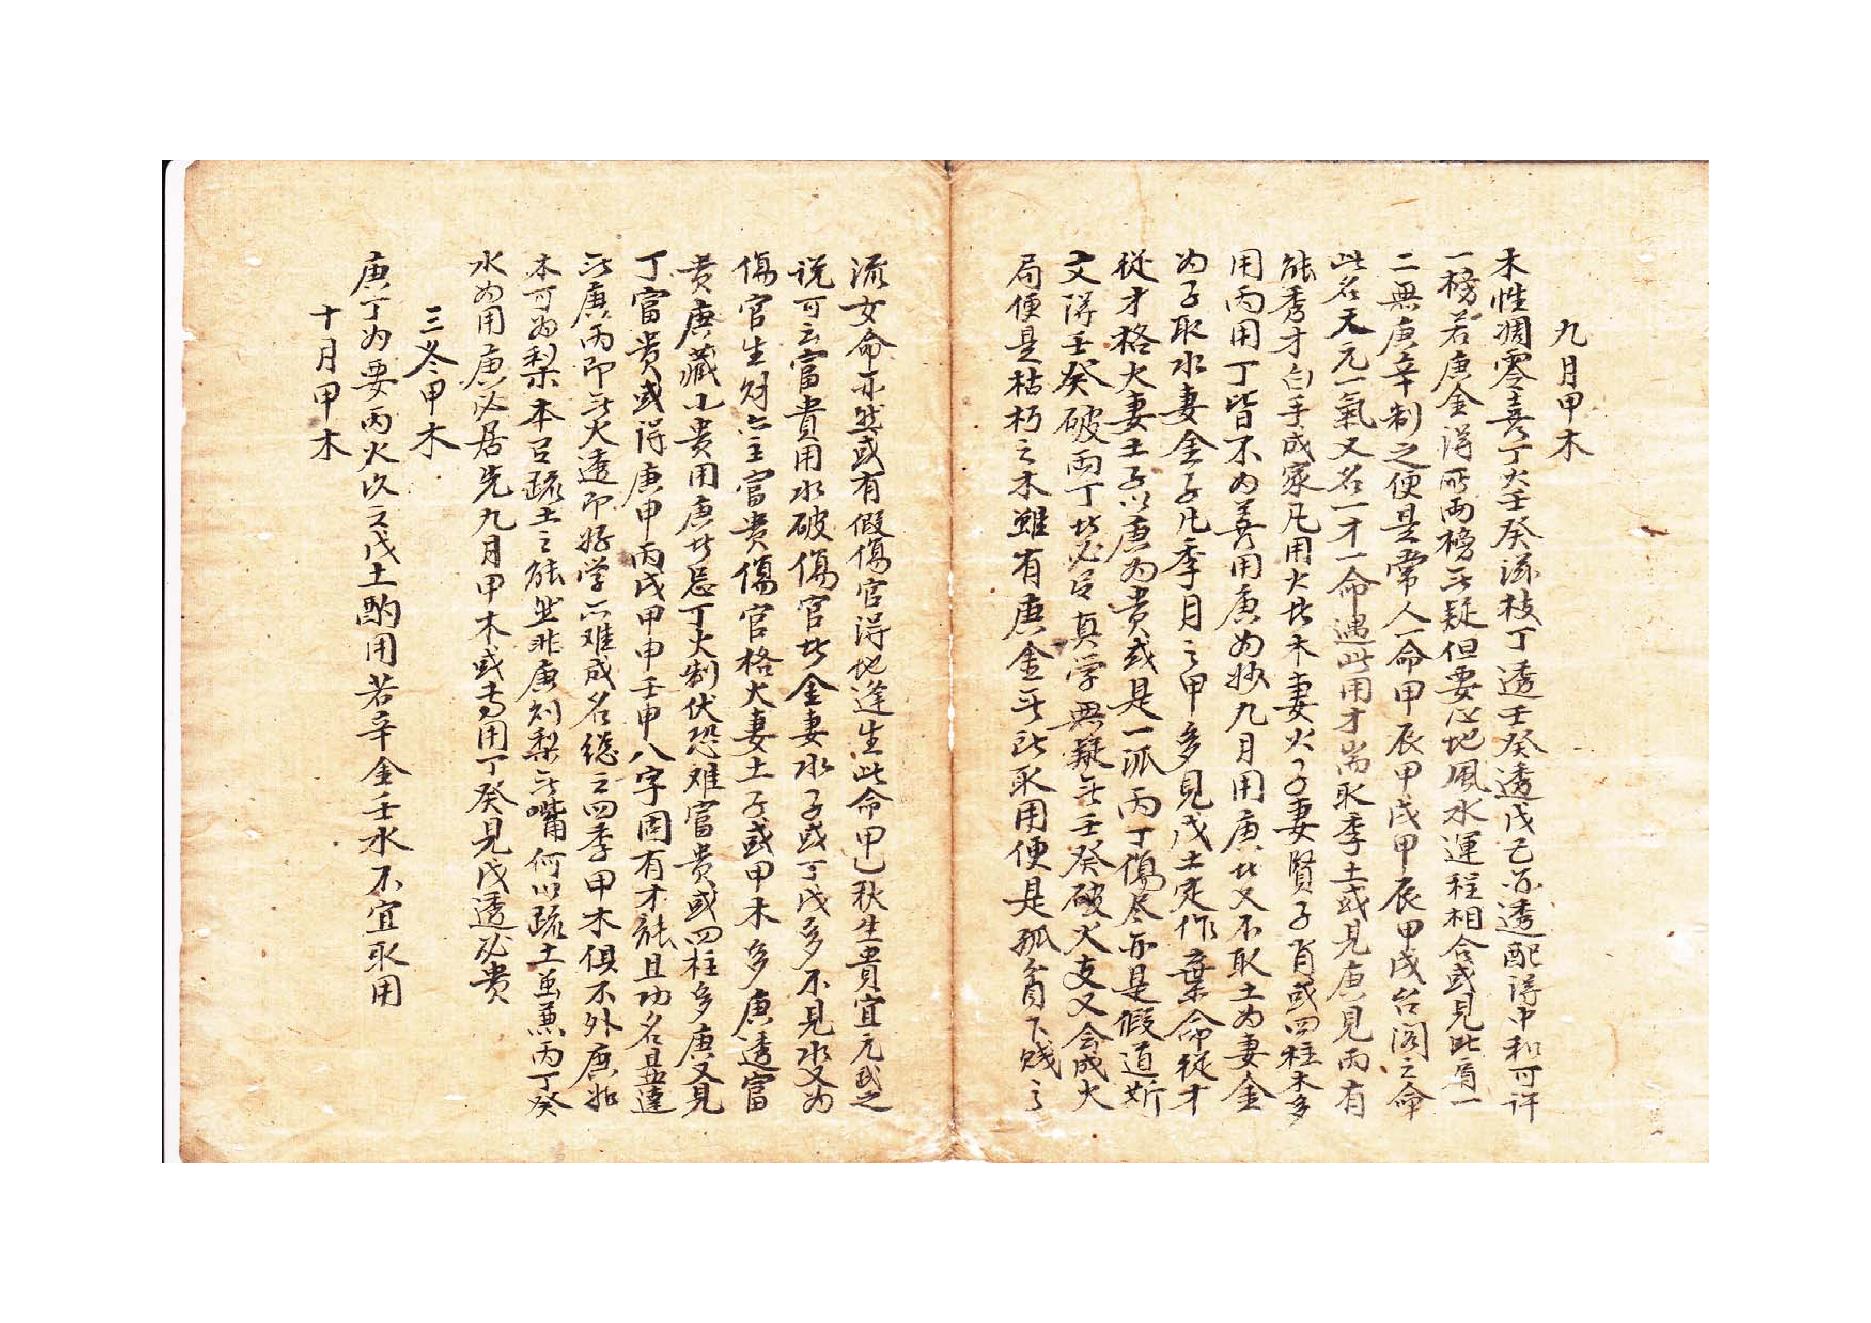 九月甲木
木性凋零喜丁火壬癸滋枝丁透壬癸透戊己亦透配得中和可許
一榜若庚金得所兩榜无疑但要心地風水運程相合或見比肩一
二無庚辛制之便是常人一命甲辰甲戌甲辰甲戌台阁之命
此名天元一氣又名一才一命遇此用才尚取季土或見庚見丙有
能秀才白手成家凡用火者木妻火子妻賢子肖或四柱木多
用丙用丁皆不为善用庚为妙九月用庚者又不取土为妻金
为子取水妻金子凡季月之甲多見戊土定作棄命從才
從才格火妻土子以庚为貴或是一派丙丁傷尽亦是假道斯
文得壬癸破丙丁者必是真学無疑无壬癸破火支又会成火
局便是枯朽之木雖有庚金无处取用便是孤貧下賤之
流女命亦然或有假傷官得地逢生此命甲乙秋生貴宜元武之
说可云富貴用水破傷官者金妻水子或丁戊多不見水又为
傷官生财亦主富貴傷官格火妻土子或甲木多庚透富
貴庚藏小貴用庚者忌丁火制伏恐难富貴或四柱多庚又見
丁富貴或得庚申丙戌甲申壬申八字固有才能且功名显達
无庚丙即无火透即好学亦难成名總之四季甲木俱不外庚
本可为梨本召疏土之能然非庚刘梨无嘴何以疏土虽兼丙丁癸
水为用庚必居先九月甲木或专用丁癸見戊透必貴
三冬甲木
庚丁为要丙火次之戊土酌用若辛金壬水不宜取用
十月甲木